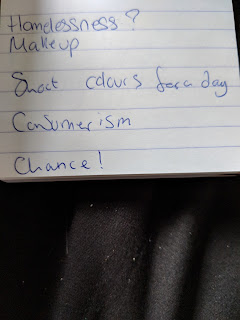 Homelessness?
Makeup
colours for a day
Consumerism
Chance!